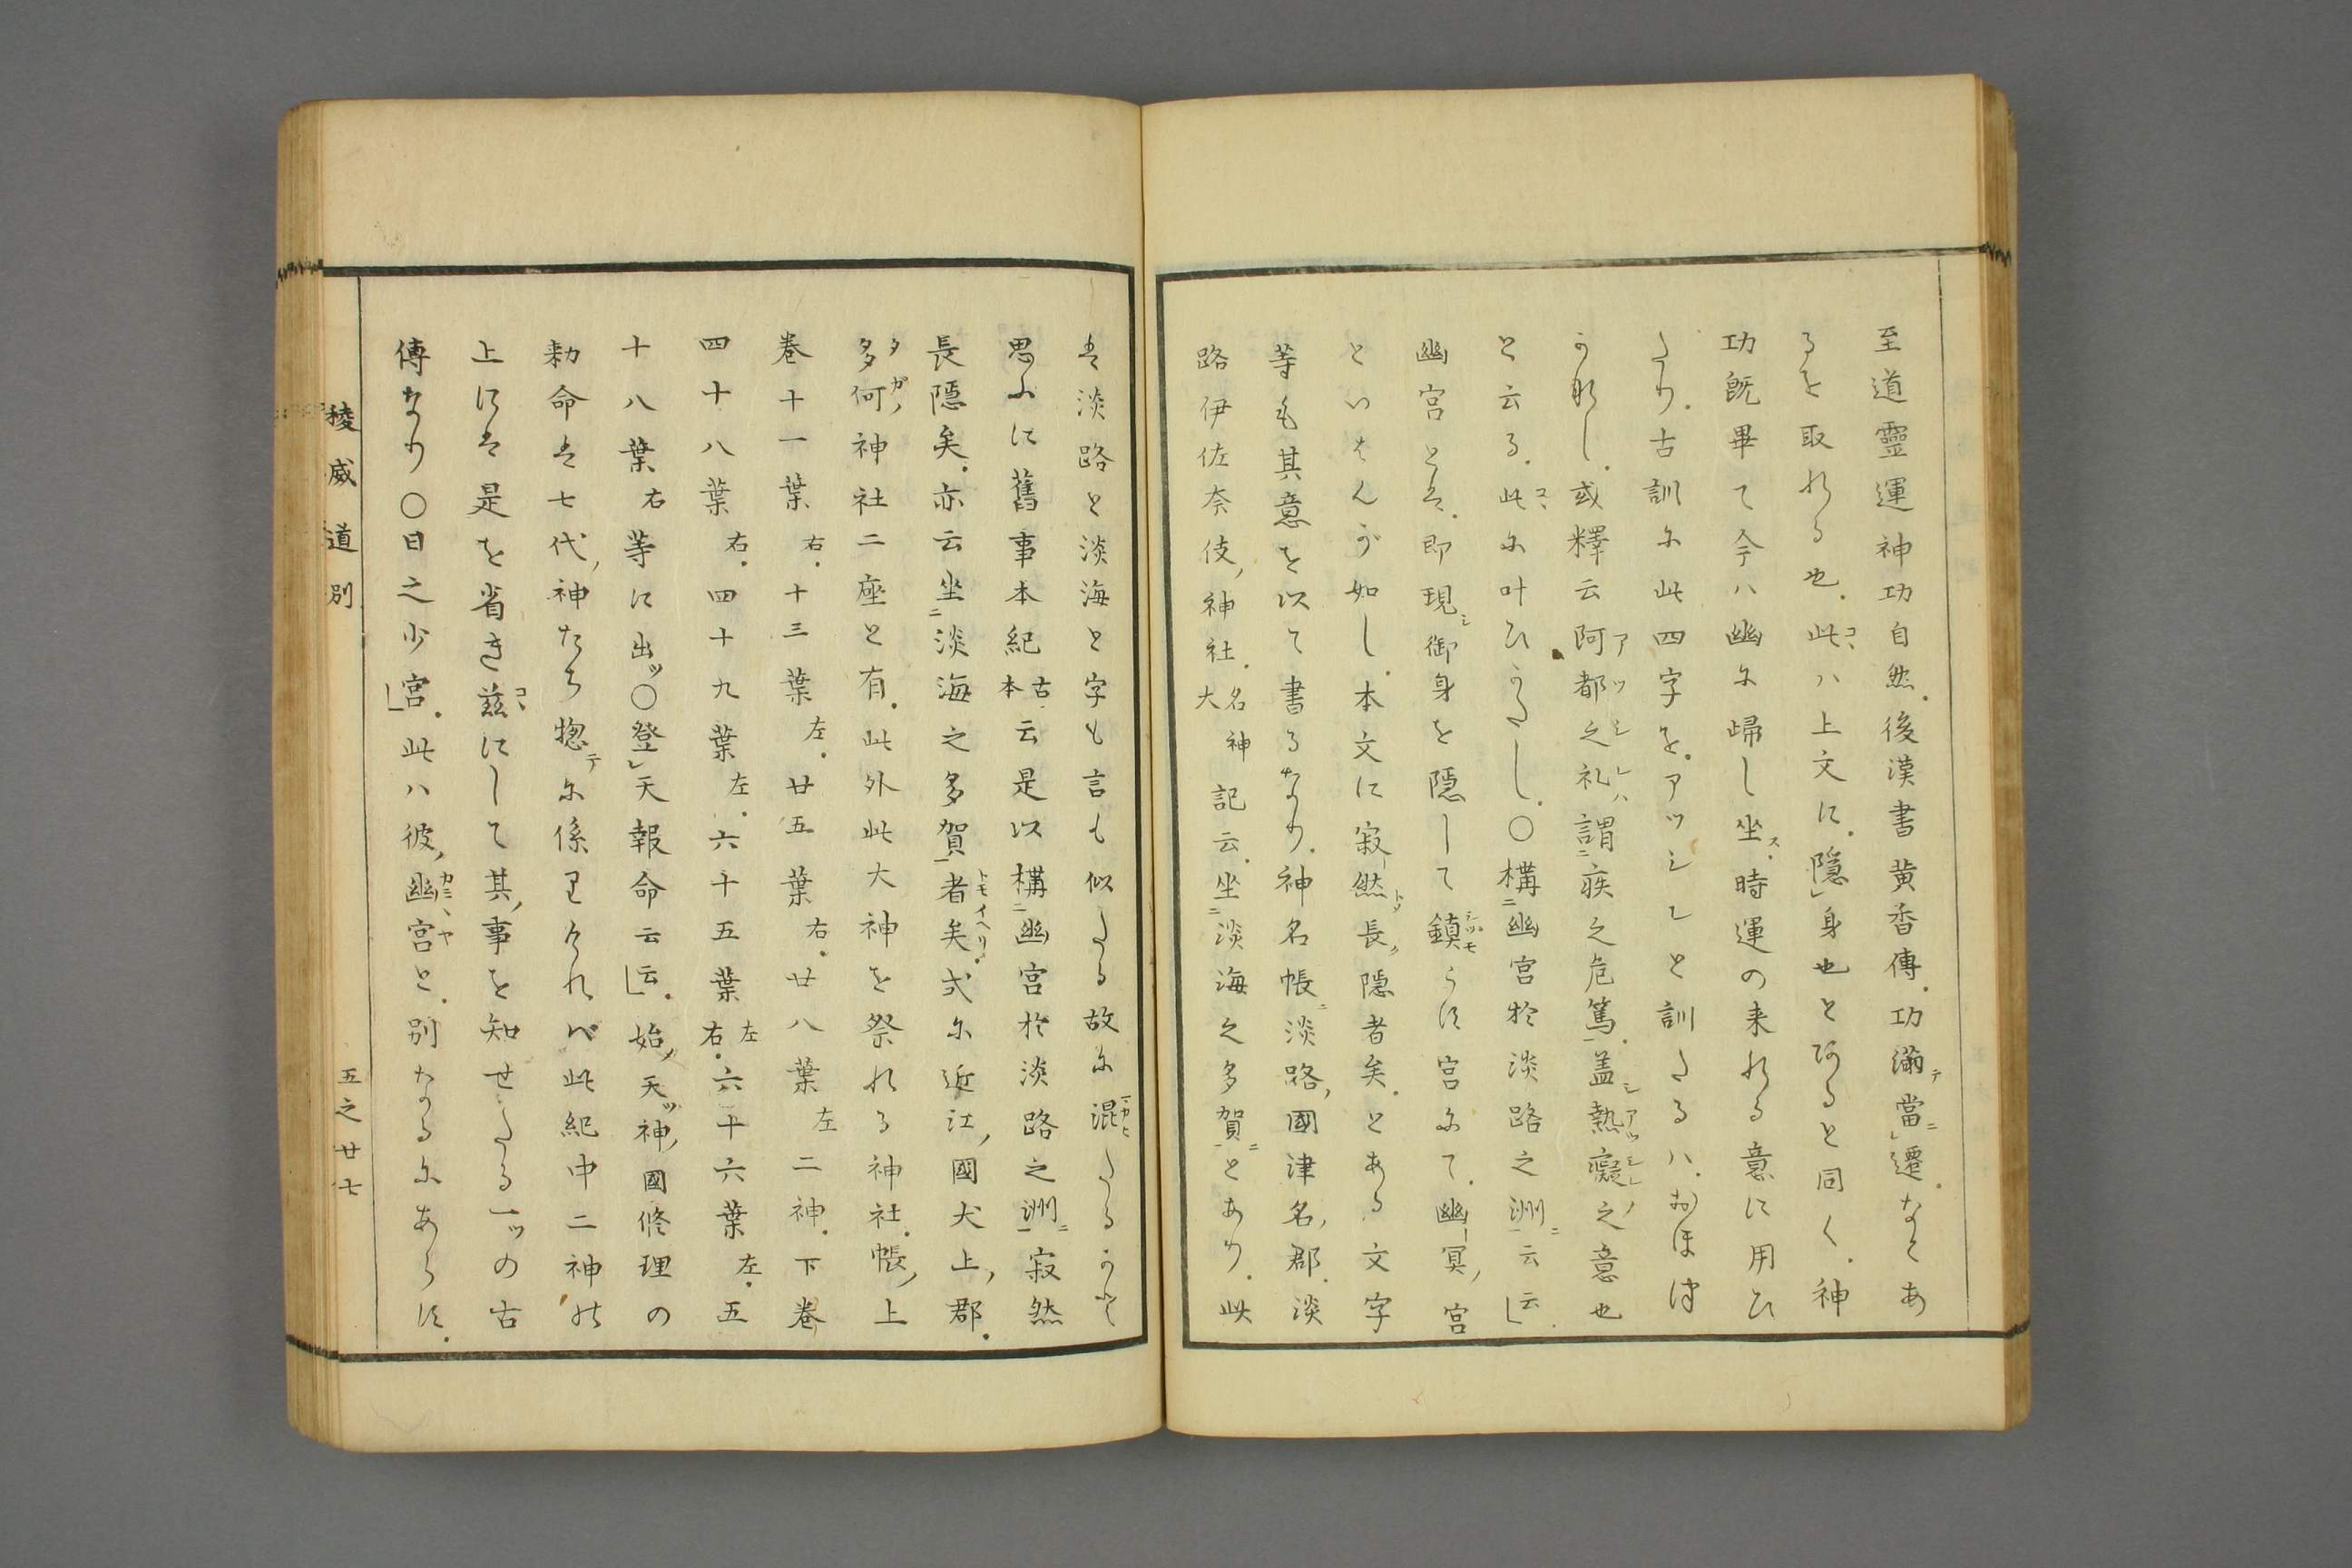 至道靈運神功自然。後漢書黄香傳。功滿當遷。なとあ
るを取れる也。此ハ上文に。隠身也とあると同く。神
功既畢て今ハ幽に帰し坐。時運の来れる意に用ひ
たり。古訓に此四字を。アツシレと訓たるハ。おほつ
かなし。或釋云阿都之礼謂疾之危篤。盖熱癡之意也
と云る。此に叶ひかたし。○構幽宮於淡路之洲云云
幽宮とは。即現御身を隠して鎮ます宮にて。幽冥宮
といはんが如し。本文に寂然長隠者矣。とある文字
等も其意を以て書るなり。神名帳淡路國津名郡。淡
路伊佐奈伎神社。名神大 記云。坐淡海之多賀とあり。此
は淡路と淡海と字も言も似たる故に混たるかと
思ふに舊事本紀古本云是以構幽宮於淡路之洲寂然
長隠矣。亦云坐淡海之多賀者矣。式に近江國犬上郡。
多何神社二座と有。此外此大神を祭れる神社。帳上
巻十一葉右。十三葉左。廿五葉右。廿八葉左二神。下巻
四十八葉右。四十九葉左。六十五葉左右。六十六葉左。五
十八葉右等に出ッ○登天報命云云。始天神國修理の
勅命は七代神たち惣に係りけれバ此紀中二神の
上には是を省き茲にして其事を知せたる一ッの古
傳なり○日之少宮。此ハ彼幽宮と。別なるにあらす。
稜威道別
五之廿七